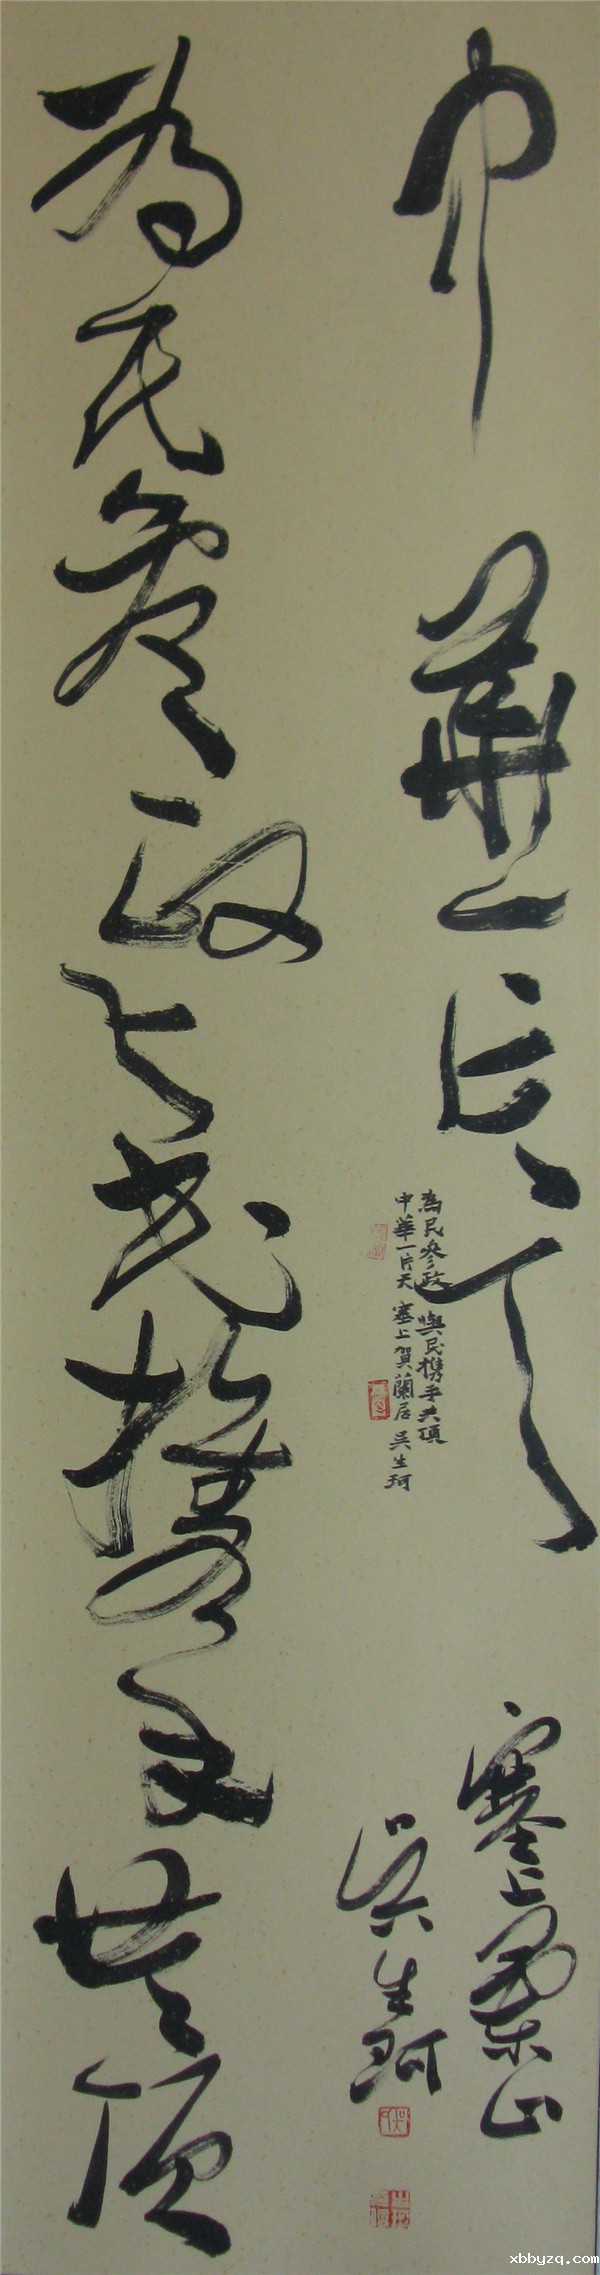 为民参政与民携手共顶
中華一片天
塞上蘭山
吳生珂
為民參政 與民携手共頂
中華一片天 塞上賀蘭居 吳生珂
xbbyzq.com